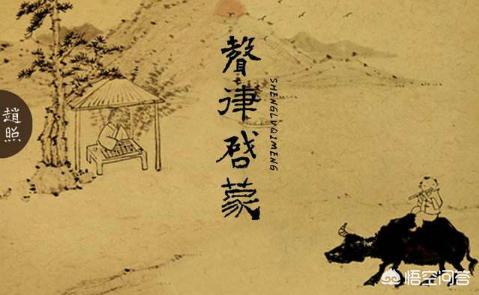 聲律啓蒙
SHENGLUQIMENG
趙照
悟空问答